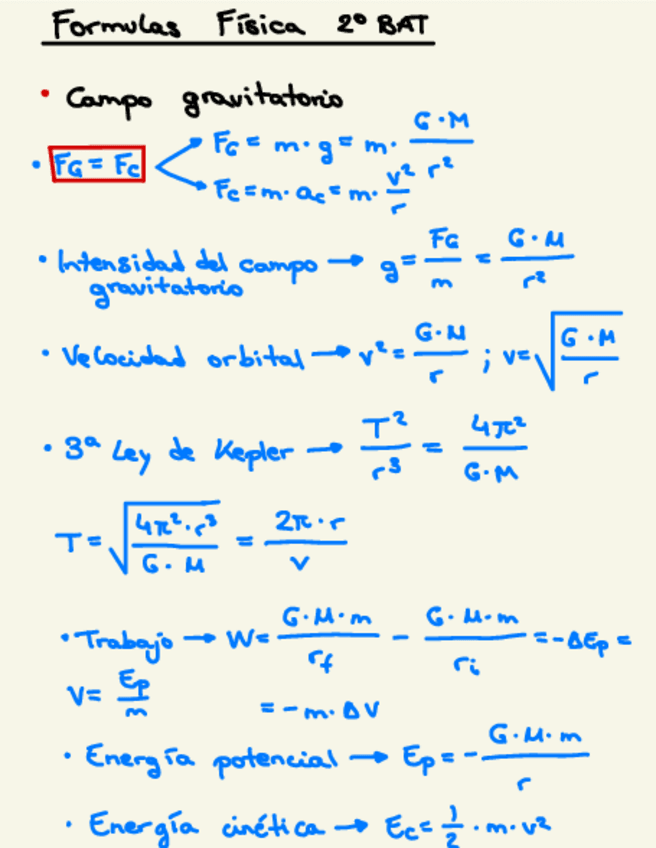 Formulas Física 2º BAT
• Campo gravitatorio
• FG = Fc
FG = m · g = m · G·M / r²
Fc = m · ac = m · v² / r
• Intensidad del campo gravitatorio → g = FG / m = G·M / r²
• Velocidad orbital → v² = G·M / r ; v = √(G·M / r)
• 3ª Ley de Kepler → T² / r³ = 4π² / G·M
T = √(4π²·r³ / G·M) = 2π·r / v
• Trabajo → W = G·M·m / rf − G·M·m / ri = −ΔEp =
V = Ep / m = −m·ΔV
• Energía potencial → Ep = − G·M·m / r
• Energía cinética → Ec = 1/2 · m · v²